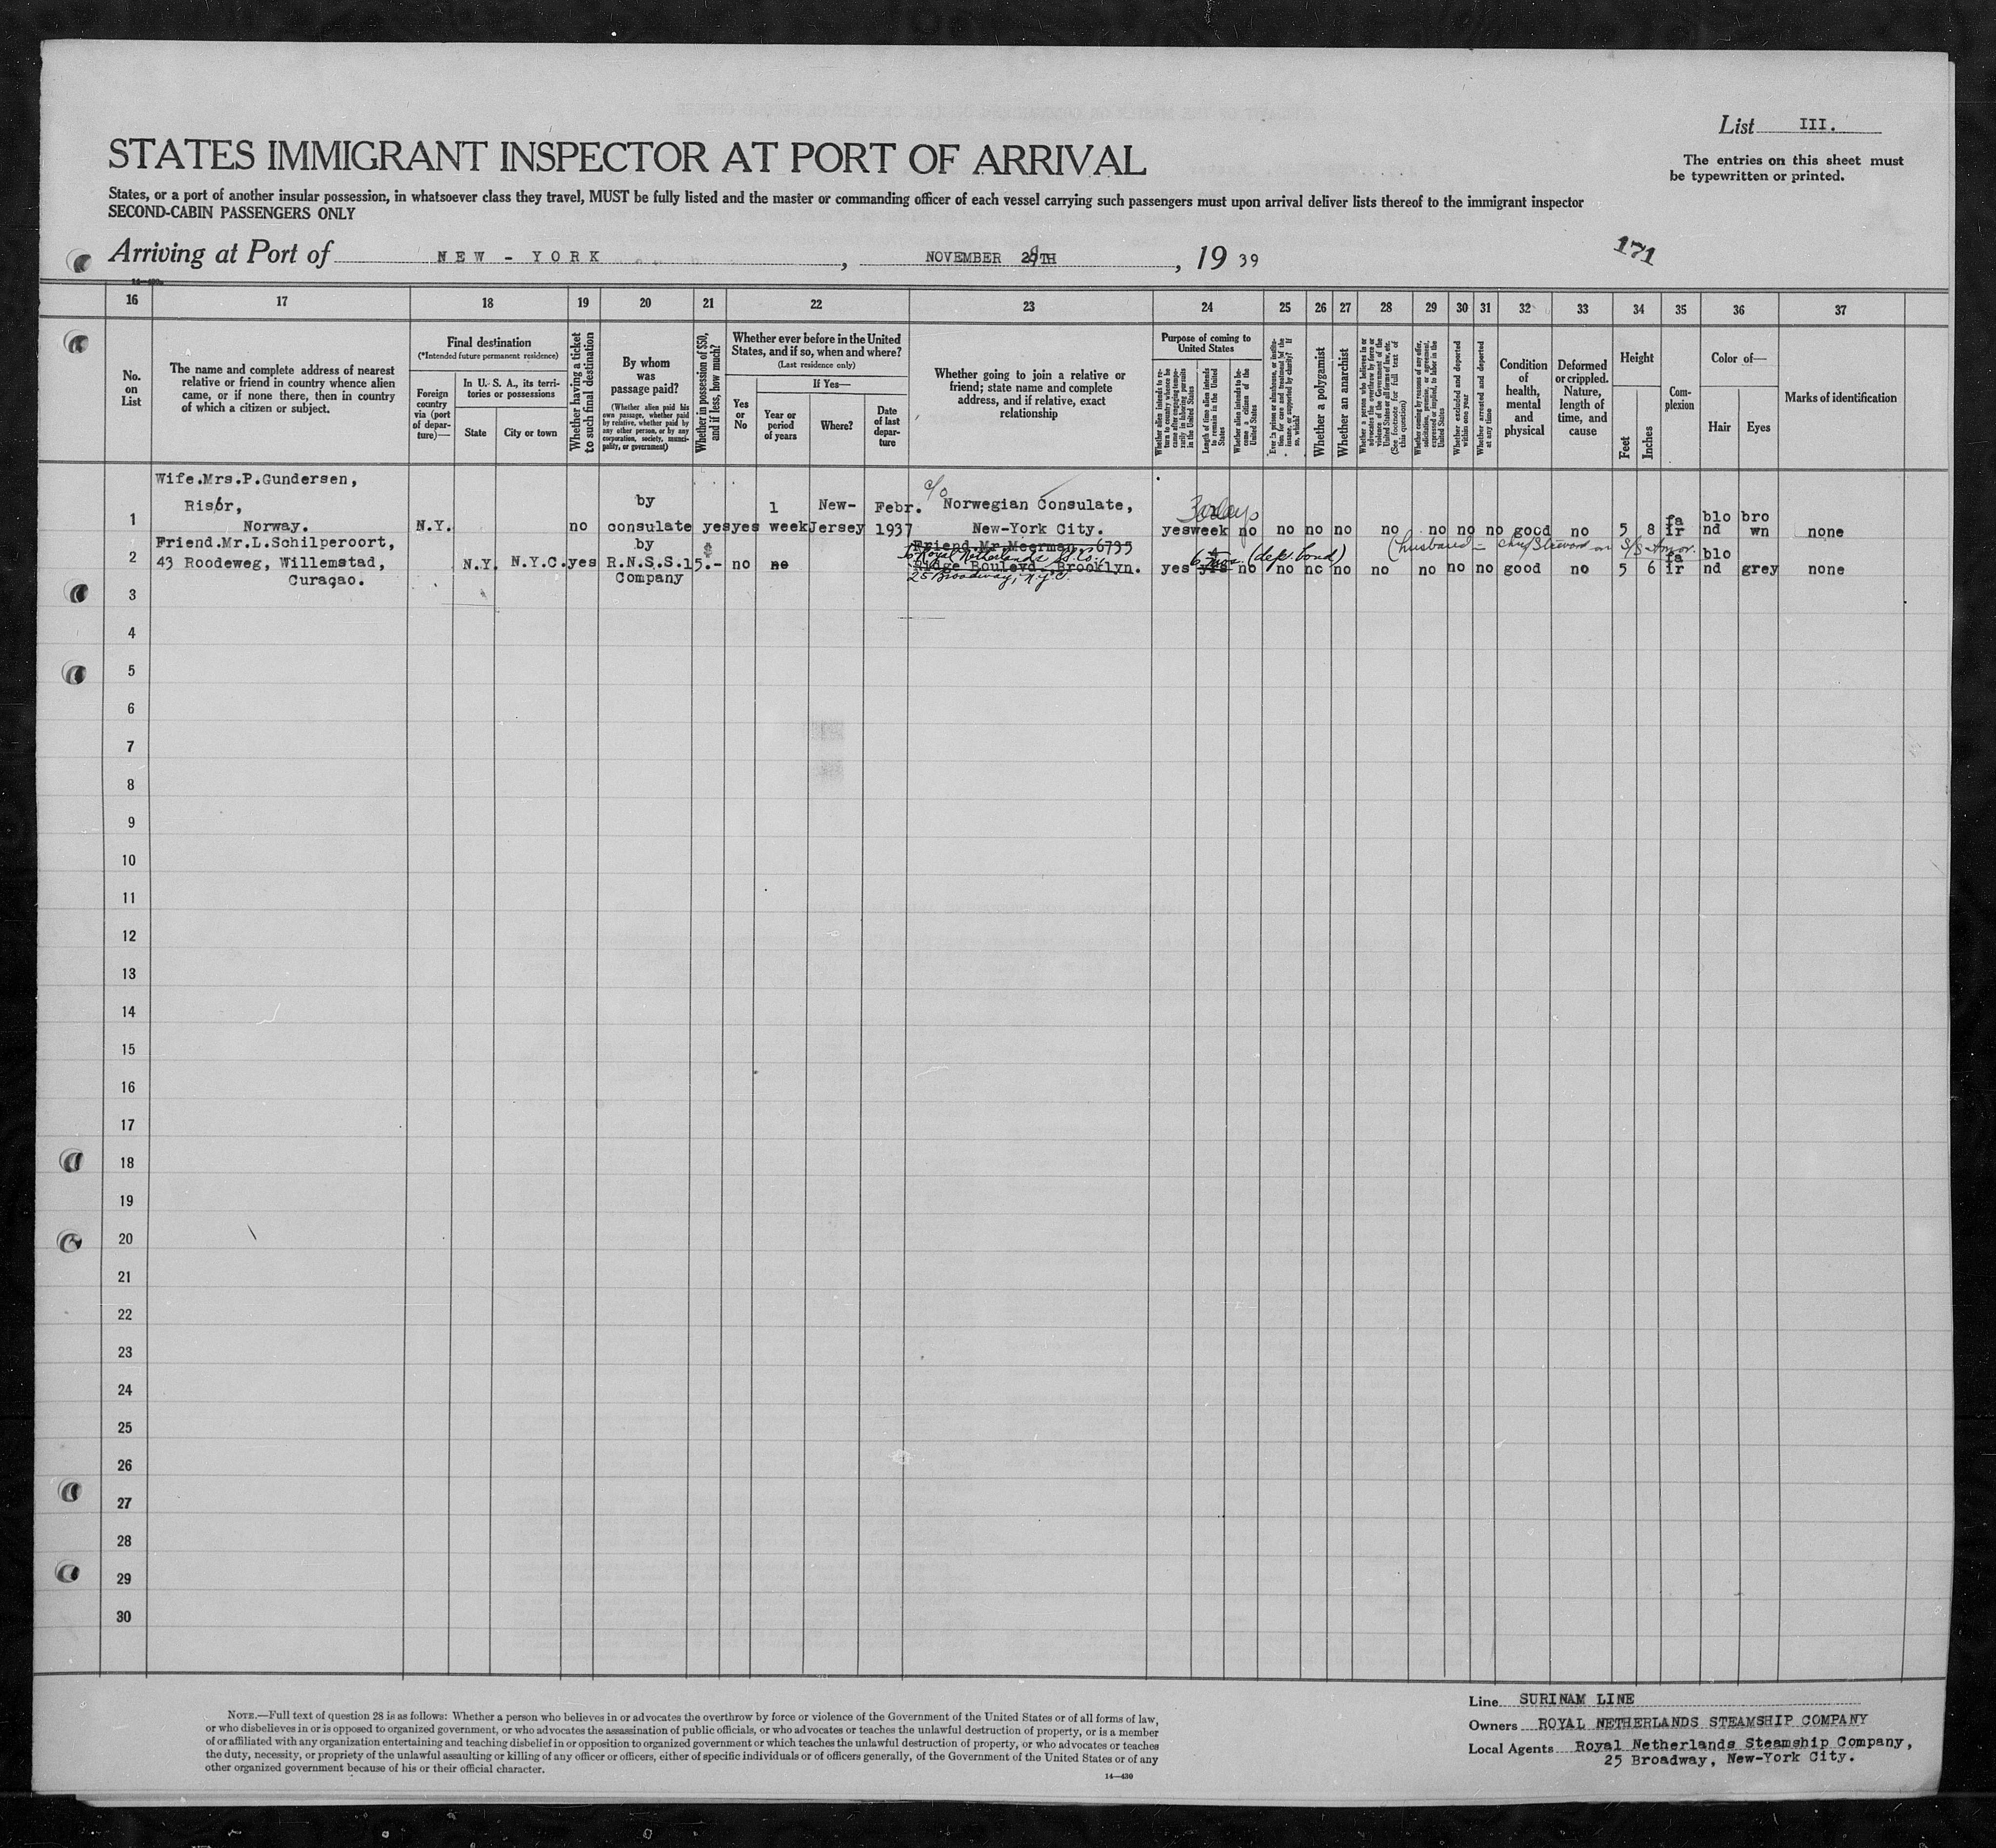 List III.
The entries on this sheet must
be typewritten or printed.
STATES IMMIGRANT INSPECTOR AT PORT OF ARRIVAL
States, or a port of another insular possession, in whatsoever class they travel, MUST be fully listed and the master or commanding officer of each vessel carrying such passengers must upon arrival deliver lists thereof to the immigrant inspector
SECOND-CABIN PASSENGERS ONLY
Arriving at Port of NEW-YORK, NOVEMBER 29TH, 1939
171
16 17 18 19 20 21 22 23 24 25 26 27 28 29 30 31 32 33 34 35 36 37
No.
on
List
The name and complete address of nearest
relative or friend in country whence alien
came, or if none there, then in country
of which a citizen or subject.
Final destination
(*Intended future permanent residence)
Foreign
country
via (port
of depar-
ture)—
In U. S. A., its terri-
tories or possessions
State
City or town
Whether having a ticket
to such final destination
By whom
was
passage paid?
(Whether alien paid his
own passage, whether paid
by relative, whether paid by
any other person, or by any
corporation, society, munici-
pality, or government)
Whether in possession of $50,
and if less, how much?
Whether ever before in the United
States, and if so, when and where?
(Last residence only)
Yes
or
No
If Yes—
Year or
period
of years
Where?
Date
of last
depar-
ture
Whether going to join a relative or
friend; state name and complete
address, and if relative, exact
relationship
Purpose of coming to
United States
Whether alien intends to re-
turn to country whence he
came after engaging tempo-
rarily in laboring pursuits
in the United States
Length of time alien intends
to remain in the United
States
Whether alien intends to be-
come a citizen of the
United States
Ever in prison or almshouse, or institu-
tion for care and treatment of the
insane, or supported by charity? If
so, which?
Whether a polygamist
Whether an anarchist
Whether a person who believes in or
advocates the overthrow by force or
violence of the Government of the
United States or all forms of law, etc.
(See footnote for full text of
this question)
Whether coming by reasons of any offer,
solicitation, promise, or agreement,
expressed or implied, to labor in the
United States
Whether excluded and deported
within one year
Whether arrested and deported
at any time
Condition
of
health,
mental
and
physical
Deformed
or crippled.
Nature,
length of
time, and
cause
Height
Feet
Inches
Com-
plexion
Color of—
Hair
Eyes
Marks of identification
Wife.Mrs.P.Gundersen,
Risör, by c/o
1 Norway. N.Y. no consulate yes yes 1 week New-Jersey Febr. 1937 Norwegian Consulate, New-York City. yes week days no no no no no no no no good no 5 8 fair blond brown none
Friend.Mr.L.Schilperoort, by Friend Mr Meerman, 6735 (husband - chief Steward on S/S Amor.
2 43 Roodeweg, Willemstad, N.Y. N.Y.C. yes R.N.S.S. 15.- no no Ridge Boulevd, Brooklyn. yes yrs no no no no no no no no good no 5 6 fair blond grey none
Curaçao. Company
c/o Royal Netherlands S.S.Co.
25 Broadway, N.Y.C.
(dep. bond)
3
4
5
6
7
8
9
10
11
12
13
14
15
16
17
18
19
20
21
22
23
24
25
26
27
28
29
30
NOTE.—Full text of question 28 is as follows: Whether a person who believes in or advocates the overthrow by force or violence of the Government of the United States or of all forms of law,
or who disbelieves in or is opposed to organized government, or who advocates the assassination of public officials, or who advocates or teaches the unlawful destruction of property, or is a member
of or affiliated with any organization entertaining and teaching disbelief in or opposition to organized government or which teaches the unlawful destruction of property, or who advocates or teaches
the duty, necessity, or propriety of the unlawful assaulting or killing of any officer or officers, either of specific individuals or of officers generally, of the Government of the United States or of any
other organized government because of his or their official character.
14—430
Line SURINAM LINE
Owners ROYAL NETHERLANDS STEAMSHIP COMPANY
Local Agents Royal Netherlands Steamship Company,
25 Broadway, New-York City.